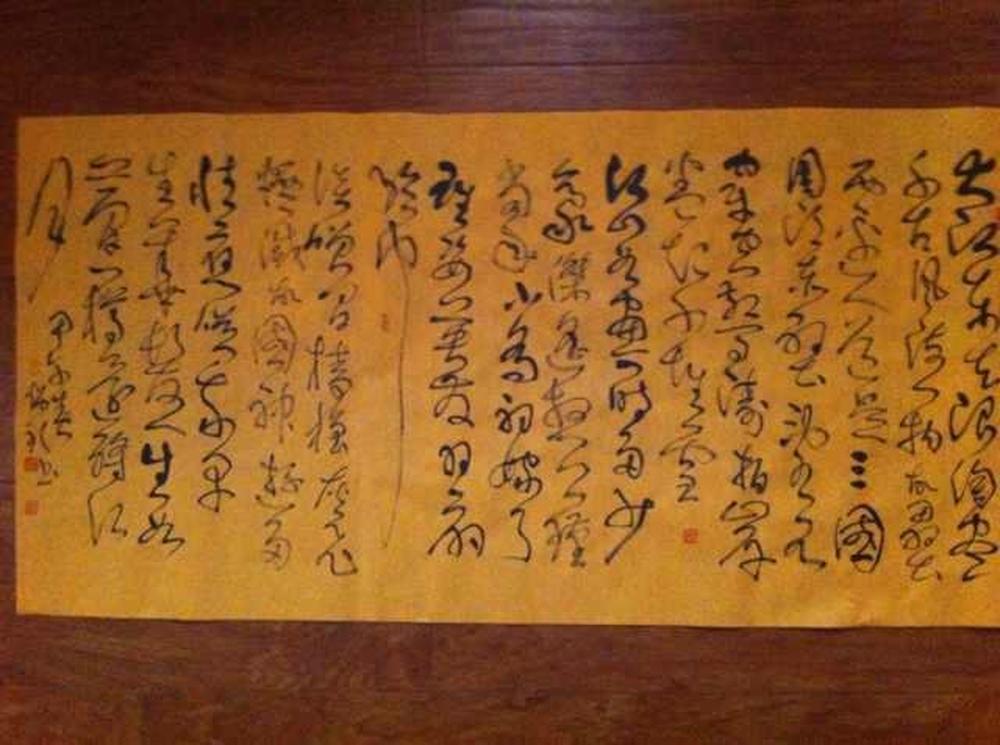 大江东去浪淘尽
千古风流人物故垒
西边人道是三國
周郎赤壁乱石
穿空惊涛拍岸
卷起千堆雪
江山如畫一時多少
豪傑遥想公瑾
當年小喬初嫁了
雄姿英发羽扇
纶巾
谈笑间樯橹灰飞
烟滅故國神遊多
情应笑我早
生华发人生如
梦一樽还酹江
月
甲午
书